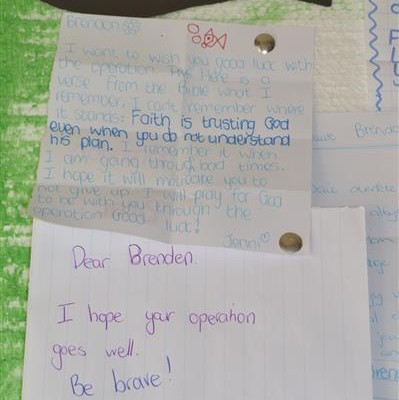 Brendon
I want to wish you good luck with
the operation. Here is a
verse from the Bible what I
remember, I can't remember where
it stands: Faith is trusting God
even when you do not understand
his plan. I remember it when
I am going through bad times.
I hope it will motivate you to
not give up. I will pray for God
to be with you through the
operation Good luck!
Jenni
Dear Brenden.
I hope your operation
goes well.
Be brave!
Brende